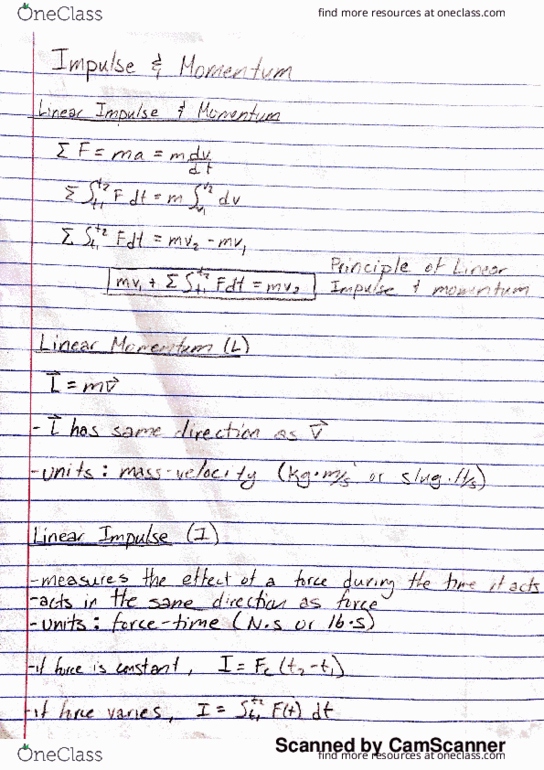 OneClass
find more resources at oneclass.com
Impulse & Momentum
Linear Impulse & Momentum
Σ F = ma = m dv/dt
Σ ∫t₁^t₂ F dt = m ∫v₁^v₂ dv
Σ ∫t₁^t₂ Fdt = mv₂ - mv₁
mv₁ + Σ ∫t₁^t₂ Fdt = mv₂
Principle of Linear
Impulse & momentum
Linear Momentum (L)
L⃗ = mv⃗
- L⃗ has same direction as v⃗
- units: mass-velocity (kg·m/s or slug·ft/s)
Linear Impulse (I)
- measures the effect of a force during the time it acts
- acts in the same direction as force
- units: force-time (N·s or lb·s)
- if force is constant, I = Fc(t₂-t₁)
- if force varies, I = ∫t₁^t₂ F(t) dt
Scanned by CamScanner
OneClass
find more resources at oneclass.com